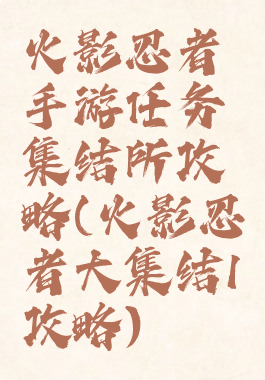 火影忍者
手游任务
集结所攻
略(火影忍
者大集结1
攻略)